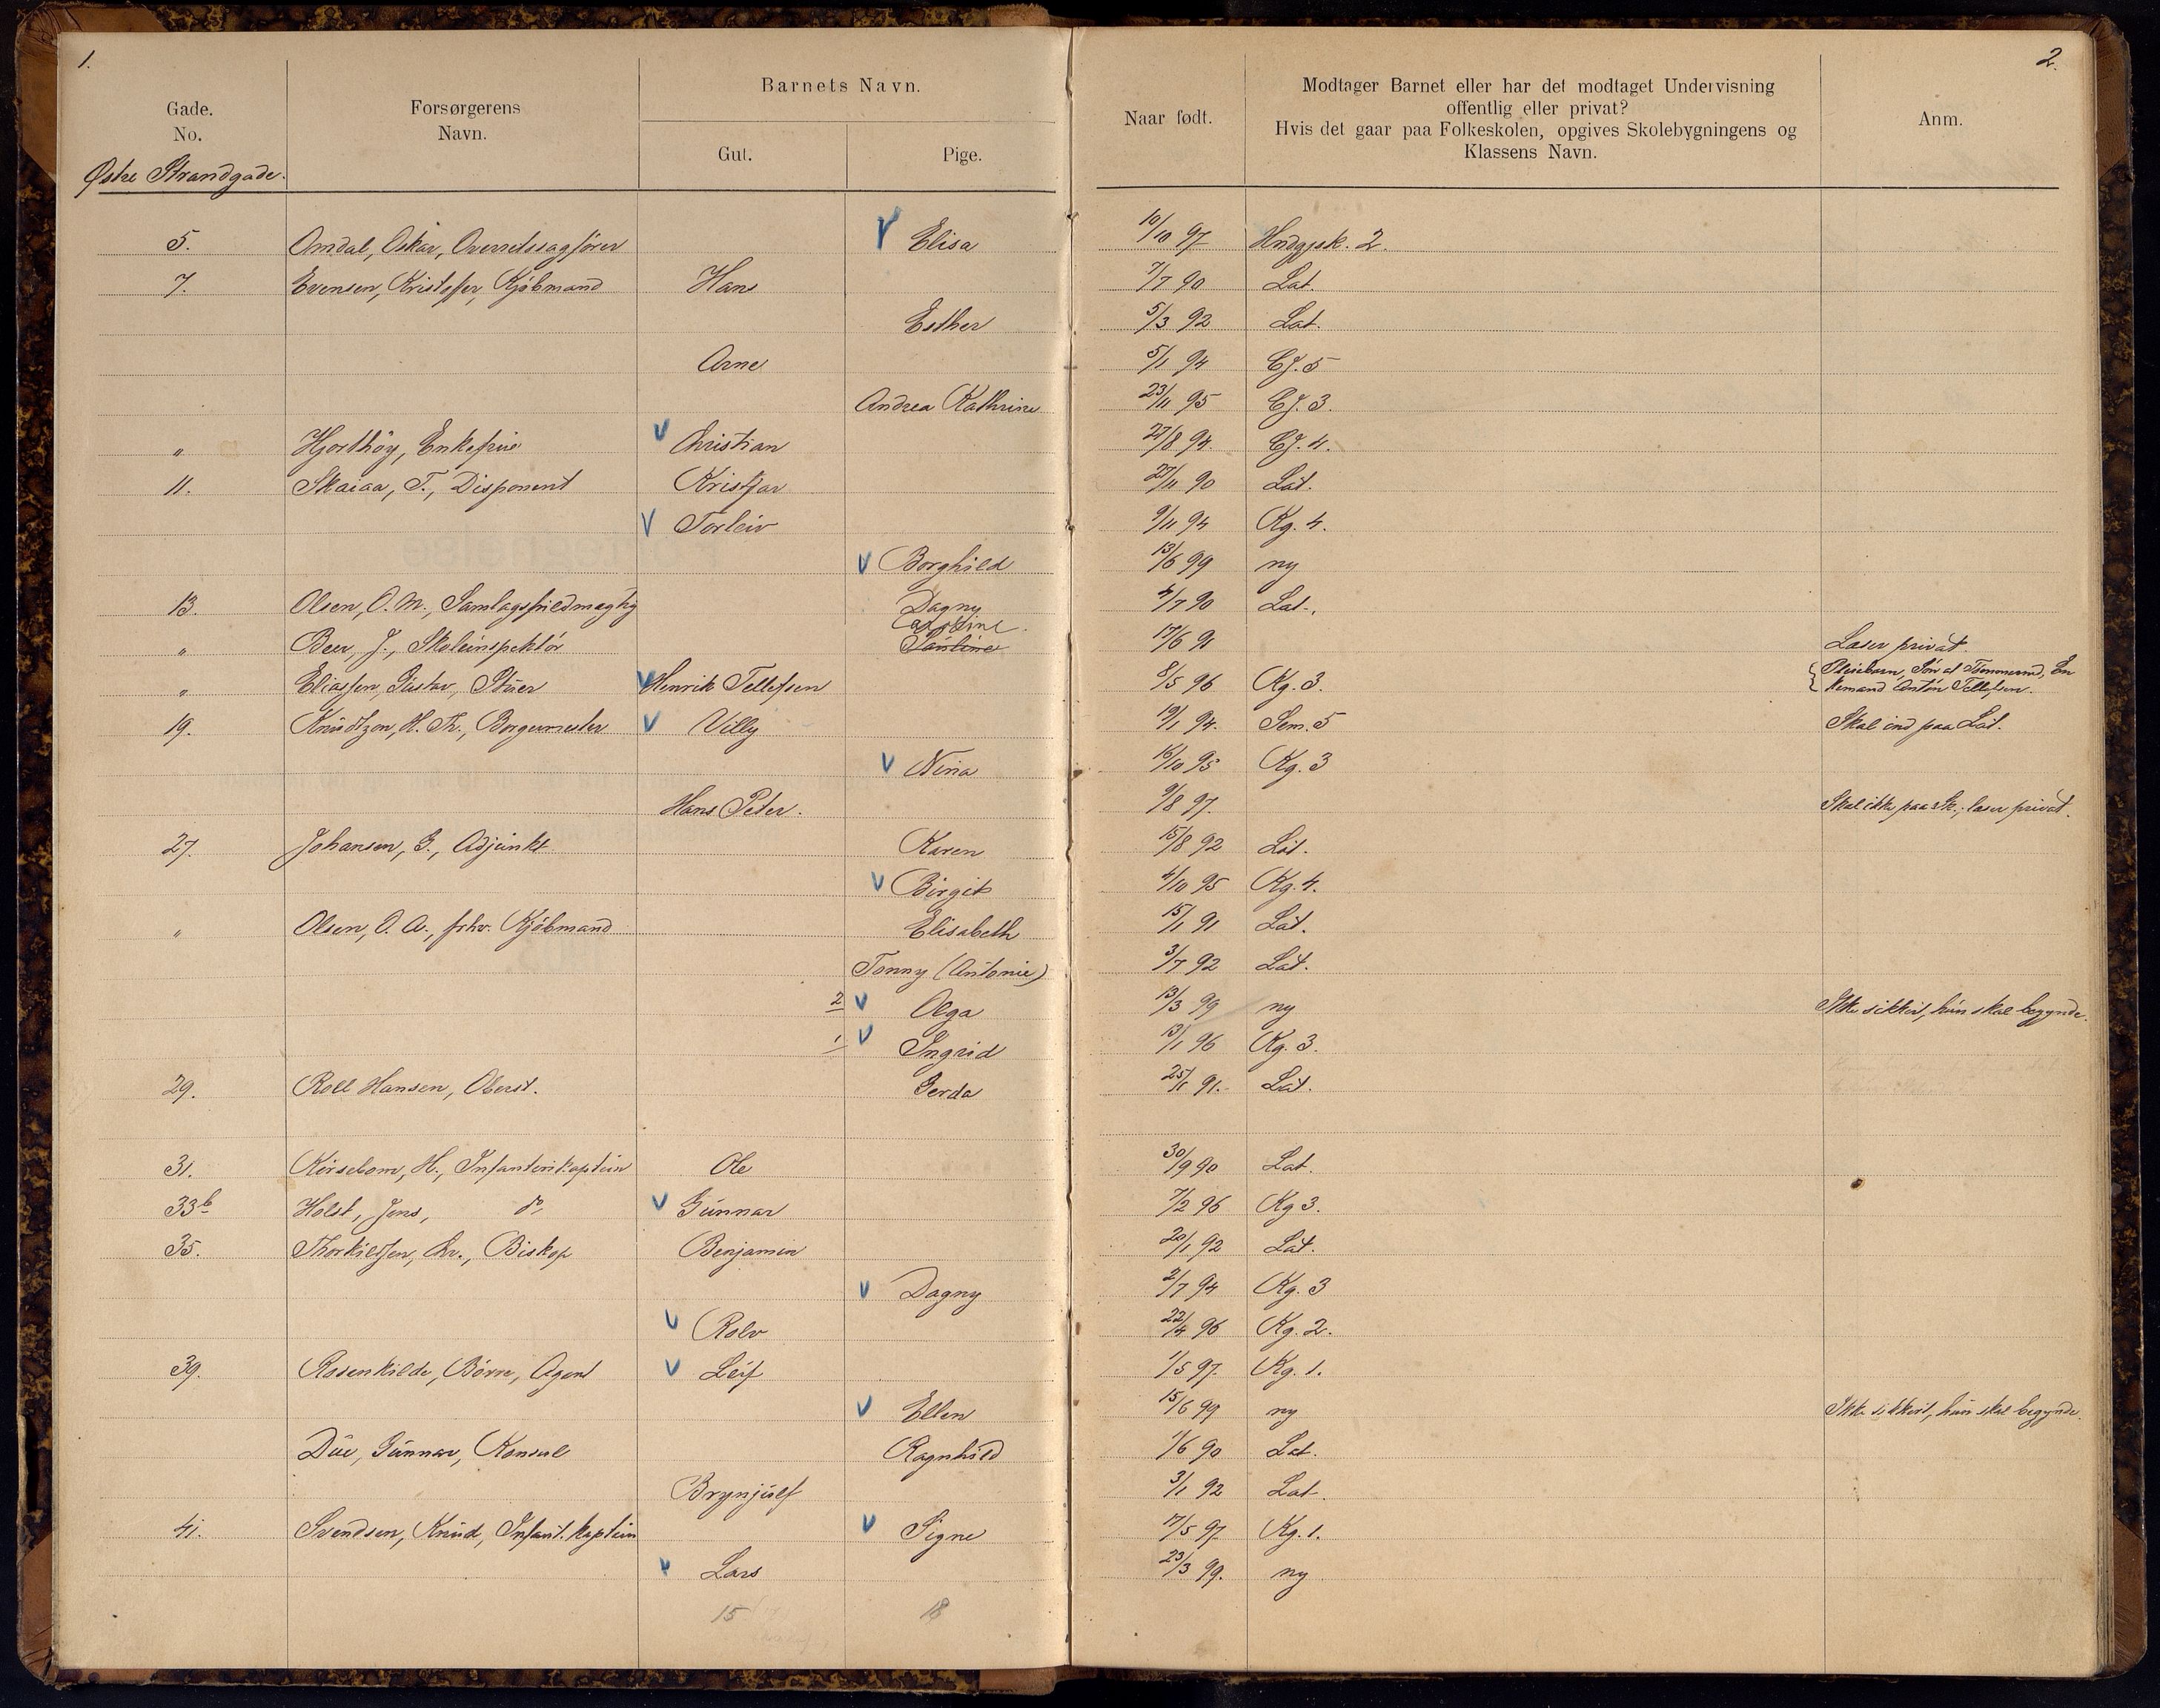 1.
2.
Gade.
No.
Forsørgerens
Navn.
Barnets Navn.
Gut.
Pige.
Naar født.
Modtager Barnet eller har det modtaget Undervisning
offentlig eller privat?
Hvis det gaar paa Folkeskolen, opgives Skolebygningens og
Klassens Navn.
Anm.
Østre Strandgade.
5. Omdal, Oskar, Overretssagfører V Elisa 10/10 97 Hndgjsk. 2.
7. Evensen, Kristoffer, Kjøbmand Hans 7/7 90 Lat.
Esther 5/3 92 Lat.
Arne 5/1 94 GJ. 5
Andrea Kathrine 23/11 95 GJ. 3.
" Hjorthøy, Enkefrue V Christian 27/8 94. GJ. 4.
11. Skaiaa, T., Disponent Kristjar 27/11 90 Lat.
V Torleiv 9/11 94 Kg. 4.
V Borghild 13/6 99 ny
13. Olsen, O. M., Samlagsfuldmægtig Dagny 4/7 90 Lat.
Caroline
" Beer, J., Skoleinspektør Pauline 17/6 91 Læser privat.
" Eliassen, Gustav, Stuer V Henrik Tellefsen 8/5 96 Kg. 3. Pleiebarn, Søn af Tømmermd, En
kemand Anton Tellefsen.
19. Knudtzon, H. Th., Borgermester V Villy 19/1 94. Sem. 5 Skal ind paa Lat.
V Nina 16/10 95 Kg. 3
Hans Peter. 9/8 97. Skal ikke paa Sk., læser privat.
27. Johansen, G., Adjunkt Karen 15/8 92 Lat.
V Birgit 4/10 95 Kg. 4.
" Olsen, O. A., fhv. Kjøbmand Elisabeth 15/1 91 Lat.
Tonny (Antonie) 3/7 92 Lat.
2 V Olga 13/3 99 ny Ikke sikkert, hun skal begynde.
1 V Ingrid 13/1 96 Kg. 3.
29. Roll Hansen, Oberst. Gerda 25/11 91. Lat.
31. Kirsebom, H., Infanterikaptein Ole 30/9 90 Lat.
33b Holst, Jens, do V Gunnar 7/2 96 Kg 3.
35. Thorkildsen, Chr., Biskop Benjamin 20/1 92 Lat.
V Dagny 2/7 94 Kg. 3
V Rolv 22/4 96 Kg. 2.
39. Rosenkilde, Børre, Agent V Leif 1/5 97. Kg. 1.
V Ellen 15/6 99 ny Ikke sikkert, hun skal begynde.
Due, Gunnar, Konsul Ragnhild 1/6 90 Lat.
Brynjulf 3/1 92 Lat.
41. Svendsen, Knud, Infant. kaptein V Signe 17/5 97. Kg. 1.
V Lars 23/3 99. ny
15 18